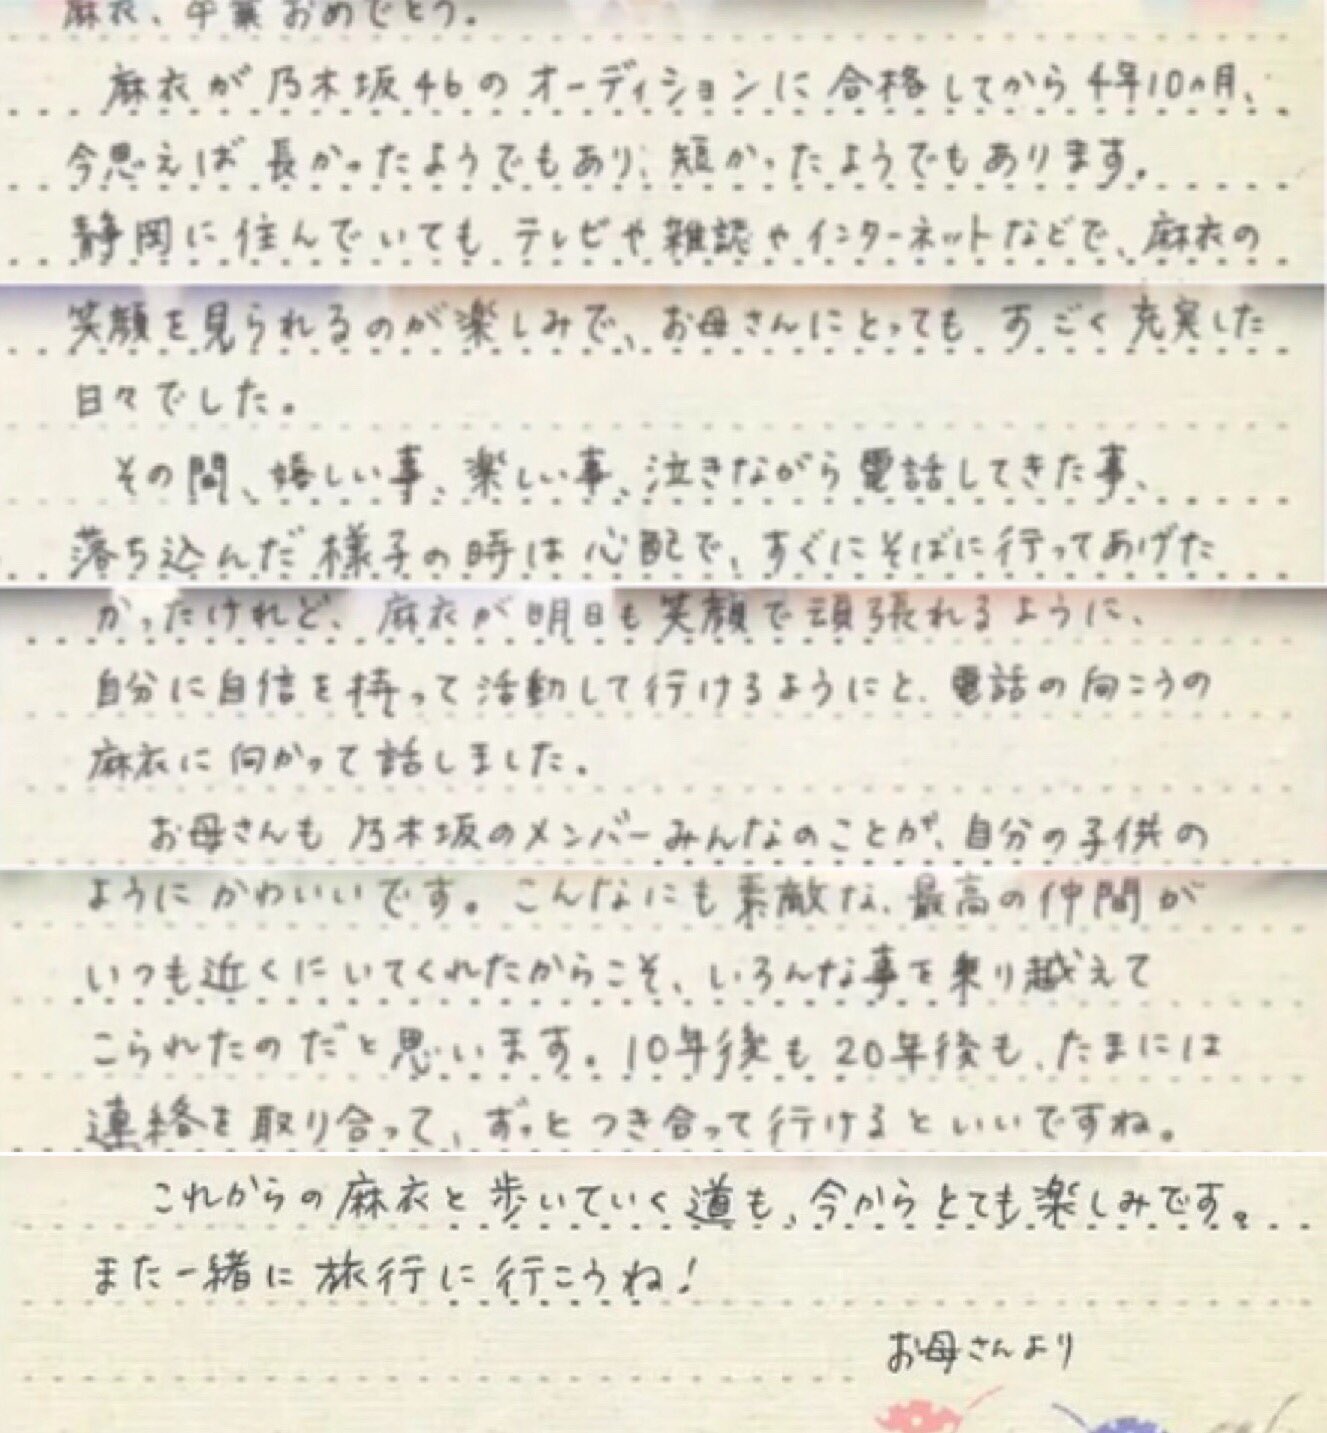 麻衣、卒業おめでとう。
麻衣が乃木坂46のオーディションに合格してから4年10ヵ月、
今思えば長かったようでもあり、短かったようでもあります。
静岡に住んでいてもテレビや雑誌やインターネットなどで、麻衣の
笑顔を見られるのが楽しみで、お母さんにとってもすごく充実した
日々でした。
その間、嬉しい事、楽しい事、泣きながら電話してきた事、
落ち込んだ様子の時は心配で、すぐにそばに行ってあげた
かったけれど、麻衣が明日も笑顔で頑張れるように、
自分に自信を持って活動して行けるようにと、電話の向こうの
麻衣に向かって話しました。
お母さんも乃木坂のメンバーみんなのことが、自分の子供の
ようにかわいいです。こんなにも素敵な、最高の仲間が
いつも近くにいてくれたからこそ、いろんな事を乗り越えて
こられたのだと思います。10年後も20年後も、たまには
連絡を取り合って、ずっとつき合って行けるといいですね。
これからの麻衣と歩いていく道も、今からとても楽しみです。
また一緒に旅行に行こうね!
お母さんより